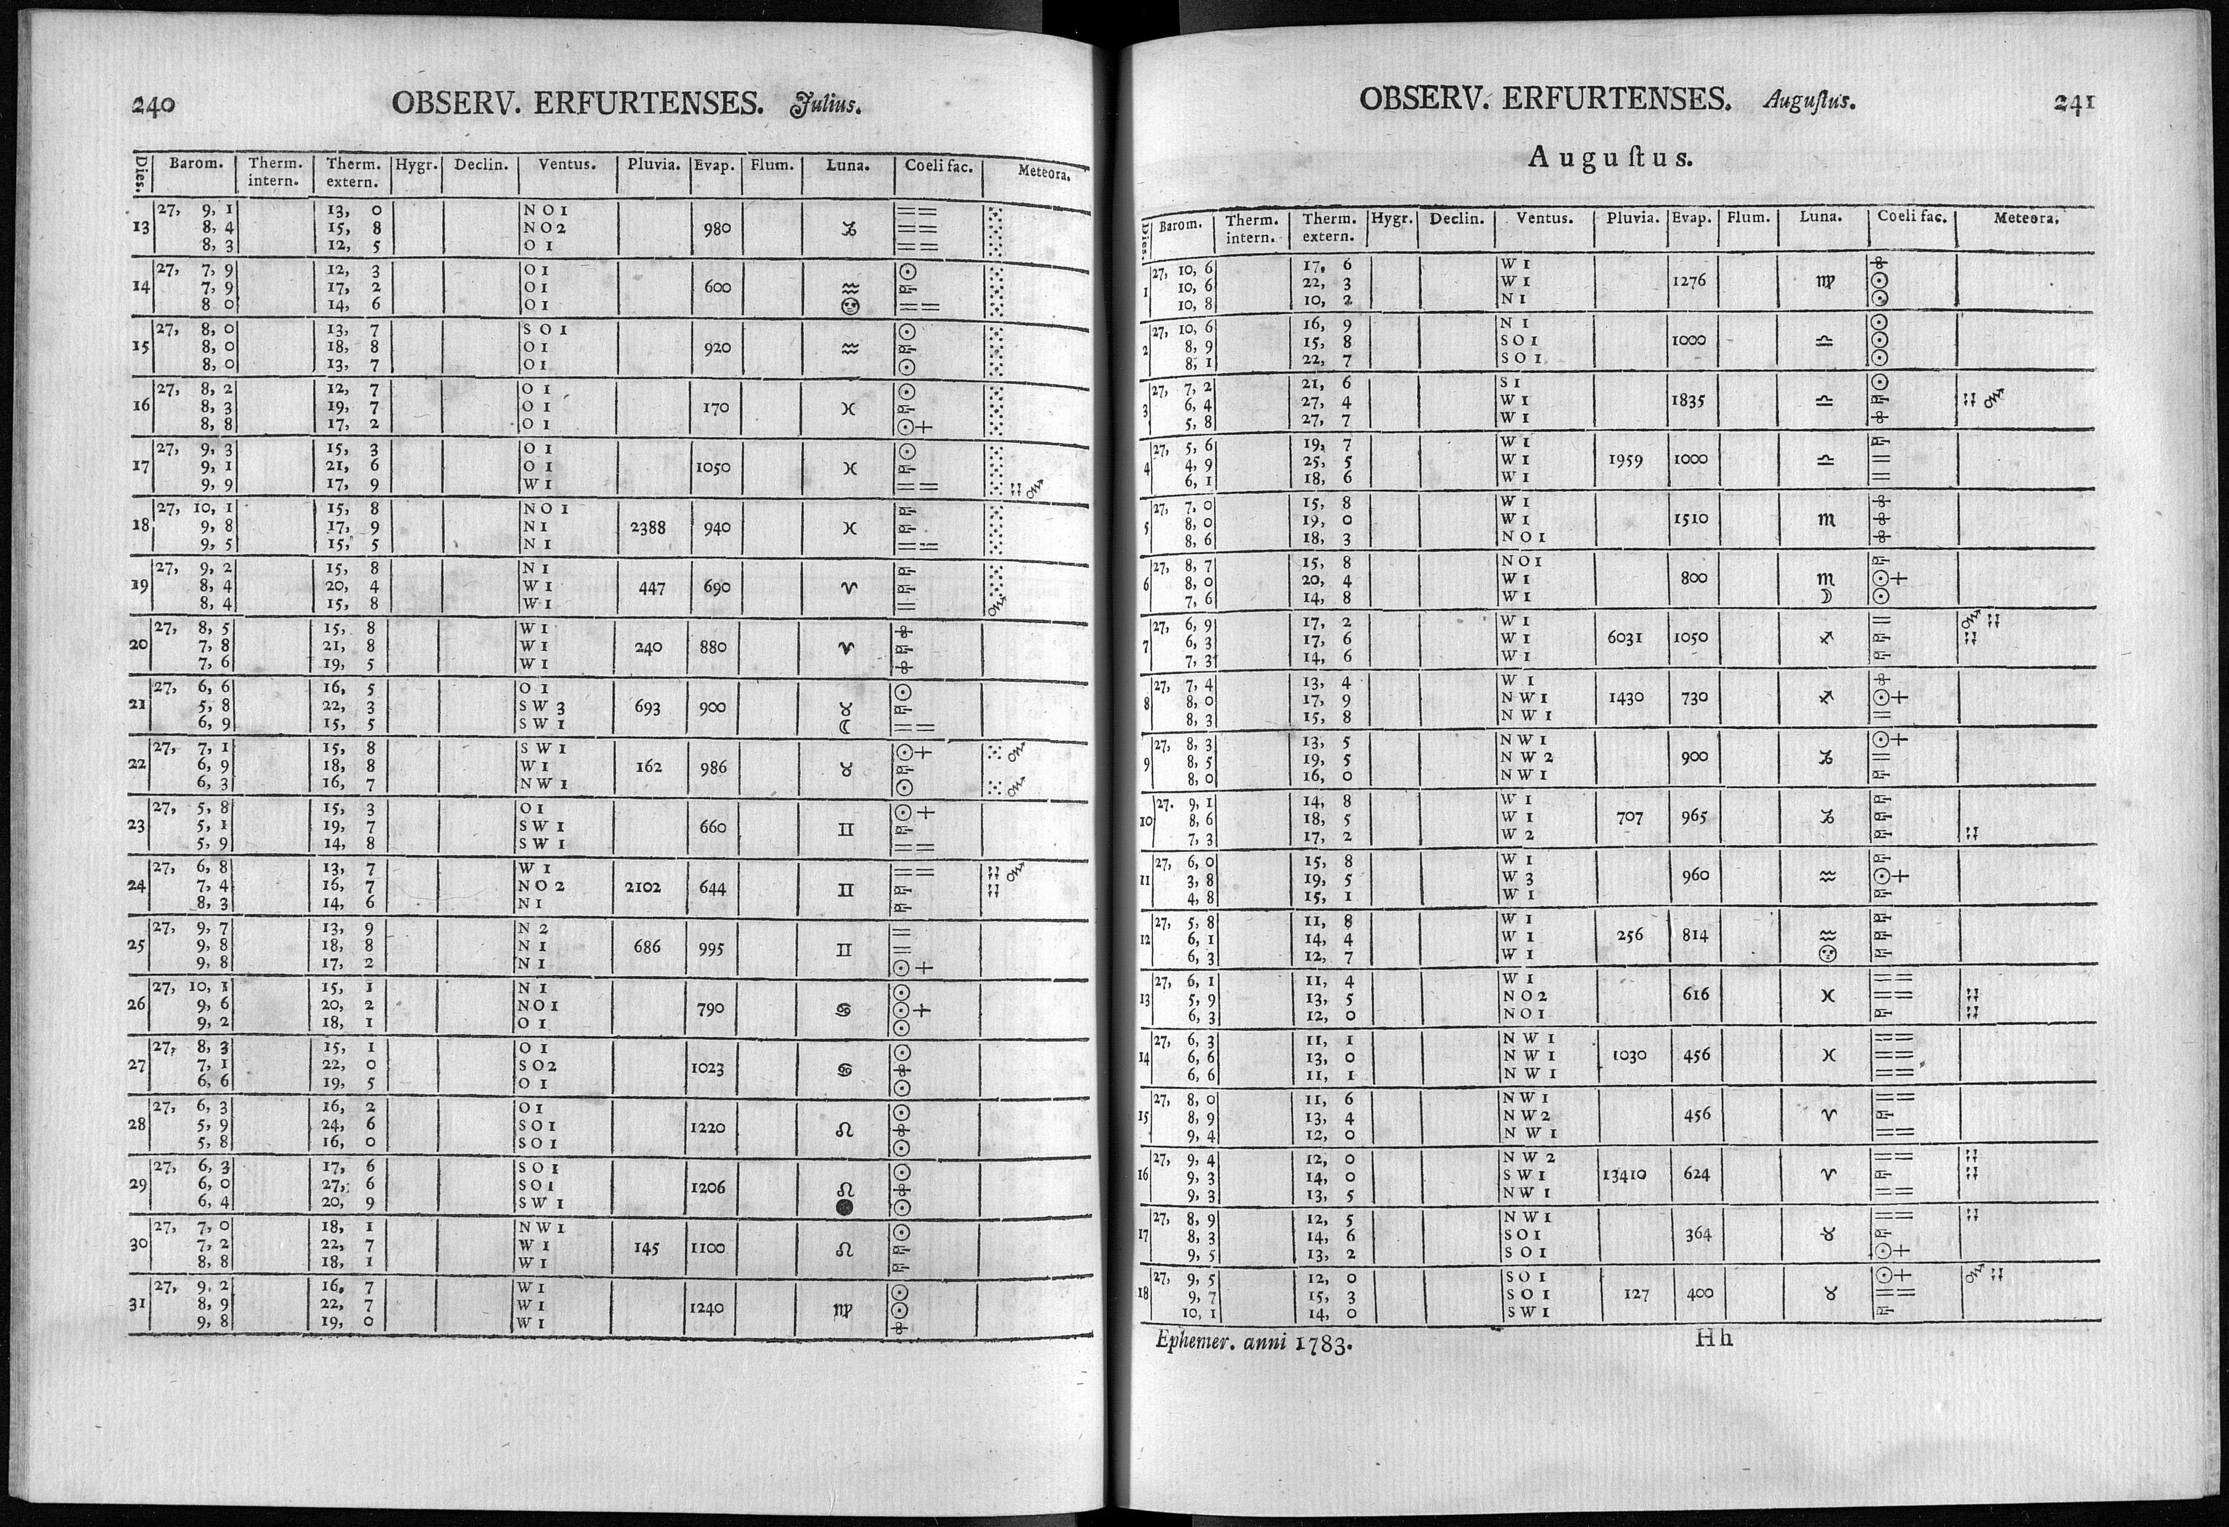 240 OBSERV. ERFURTENSES. Julius.
Dies. Barom. Therm. intern. Therm. extern. Hygr. Declin. Ventus. Pluvia. Evap. Flum. Luna. Coeli fac. Meteora.
27, 9, 1 13, 0 N O 1 ==
13 8, 4 15, 8 N O 2 980 ♑ ==
8, 3 12, 5 O 1 ==
27, 7, 9 12, 3 O 1 ☉
14 7, 9 17, 2 O 1 600 ♒
8 0 14, 6 O 1 ==
27, 8, 0 13, 7 S O 1 ☉
15 8, 0 18, 8 O 1 920 ♒
8, 0 13, 7 O 1 ☉
27, 8, 2 12, 7 O 1 ☉
16 8, 3 19, 7 O 1 170 ♓
8, 8 17, 2 O 1 ☉+
27, 9, 3 15, 3 O 1 ☉
17 9, 1 21, 6 O 1 1050 ♓
9, 9 17, 9 W 1 ==
27, 10, 1 15, 8 N O 1
18 9, 8 17, 9 N 1 2388 940 ♓
9, 5 15, 5 N 1 ==
27, 9, 2 15, 8 N 1
19 8, 4 20, 4 W 1 447 690 ♈
8, 4 15, 8 W 1 =
27, 8, 5 15, 8 W 1
20 7, 8 21, 8 W 1 240 880 ♈
7, 6 19, 5 W 1
27, 6, 6 16, 5 O 1 ☉
21 5, 8 22, 3 S W 3 693 900 ♉
6, 9 15, 5 S W 1 ☾ ==
27, 7, 1 15, 8 S W 1 ☉+
22 6, 9 18, 8 W 1 162 986 ♉
6, 3 16, 7 N W 1 ☉
27, 5, 8 15, 3 O 1 ☉+
23 5, 1 19, 7 S W 1 660 ♊
5, 9 14, 8 S W 1 ==
27, 6, 8 13, 7 W 1 ==
24 7, 4 16, 7 N O 2 2102 644 ♊
8, 3 14, 6 N 1
27, 9, 7 13, 9 N 2 =
25 9, 8 18, 8 N 1 686 995 ♊ =
9, 8 17, 2 N 1 ☉+
27, 10, 1 15, 1 N 1 ☉
26 9, 6 20, 2 N O 1 790 ♋ ☉+
9, 2 18, 1 O 1 ☉
27, 8, 3 15, 1 O 1 ☉
27 7, 1 22, 0 S O 2 1023 ♋
6, 6 19, 5 O 1 ☉
27, 6, 3 16, 2 O 1 ☉
28 5, 9 24, 6 S O 1 1220 ♌
5, 8 16, 0 S O 1 ☉
27, 6, 3 17, 6 S O 1 ☉
29 6, 0 27, 6 S O 1 1206 ♌
6, 4 20, 9 S W 1 ● ☉
27, 7, 0 18, 1 N W 1 ☉
30 7, 2 22, 7 W 1 145 1100 ♌
8, 8 18, 1 W 1
27, 9, 2 16, 7 W 1 ☉
31 8, 9 22, 7 W 1 1240 ♍ ☉
9, 8 19, 0 W 1
OBSERV. ERFURTENSES. Auguſtus. 241
Auguſtus.
Dies. Barom. Therm. intern. Therm. extern. Hygr. Declin. Ventus. Pluvia. Evap. Flum. Luna. Coeli fac. Meteora.
27, 10, 6 17, 6 W 1
1 10, 6 22, 3 W 1 1276 ♍ ☉
10, 8 10, 2 N 1 ☉
27, 10, 6 16, 9 N 1 ☉
2 8, 9 15, 8 S O 1 1000 ♎ ☉
8, 1 22, 7 S O 1 ☉
27, 7, 2 21, 6 S 1 ☉
3 6, 4 27, 4 W 1 1835 ♎
5, 8 27, 7 W 1
27, 5, 6 19, 7 W 1
4 4, 9 25, 5 W 1 1959 1000 ♎ =
6, 1 18, 6 W 1 =
27, 7, 0 15, 8 W 1
5 8, 0 19, 0 W 1 1510 ♏
8, 6 18, 3 N O 1
27, 8, 7 15, 8 N O 1
6 8, 0 20, 4 W 1 800 ♏ ☉+
7, 6 14, 8 W 1 ☽ ☉
27, 6, 9 17, 2 W 1 =
7 6, 3 17, 6 W 1 6031 1050 ♐
7, 3 14, 6 W 1
27, 7, 4 13, 4 W 1
8 8, 0 17, 9 N W 1 1430 730 ♐ ☉+
8, 3 15, 8 N W 1 =
27, 8, 3 13, 5 N W 1 ☉+
9 8, 5 19, 5 N W 2 900 ♑ =
8, 0 16, 0 N W 1
27. 9, 1 14, 8 W 1
10 8, 6 18, 5 W 1 707 965 ♑
7, 3 17, 2 W 2
27, 6, 0 15, 8 W 1
11 3, 8 19, 5 W 3 960 ♒ ☉+
4, 8 15, 1 W 1
27, 5, 8 11, 8 W 1
12 6, 1 14, 4 W 1 256 814 ♒
6, 3 12, 7 W 1
27, 6, 1 11, 4 W 1 ==
13 5, 9 13, 5 N O 2 616 ♓ ==
6, 3 12, 0 N O 1
27, 6, 3 11, 1 N W 1 ==
14 6, 6 13, 0 N W 1 1030 456 ♓ ==
6, 6 11, 1 N W 1 ==
27, 8, 0 11, 6 N W 1 ==
15 8, 9 13, 4 N W 2 456 ♈
9, 4 12, 0 N W 1 ==
27, 9, 4 12, 0 N W 2 ==
16 9, 3 14, 0 S W 1 13410 624 ♈
9, 3 13, 5 N W 1 ==
27, 8, 9 12, 5 N W 1 ==
17 8, 3 14, 6 S O 1 364 ♉
9, 5 13, 2 S O 1 ☉+
27, 9, 5 12, 0 S O 1 ☉+
18 9, 7 15, 3 S O 1 127 400 ♉ ==
10, 1 14, 0 S W 1
Ephemer. anni 1783. H h